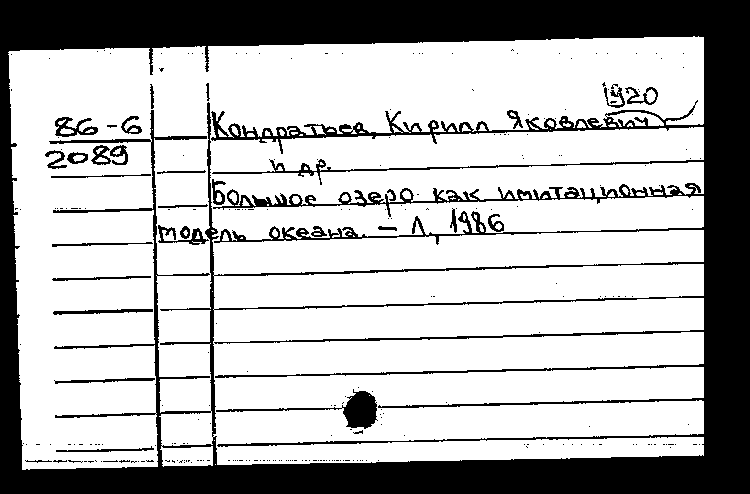 1920
86-6 Кондратьев, Кирилл Яковлевич,
2089 и др.
Большое озеро как имитационная
модель океана. – Л., 1986